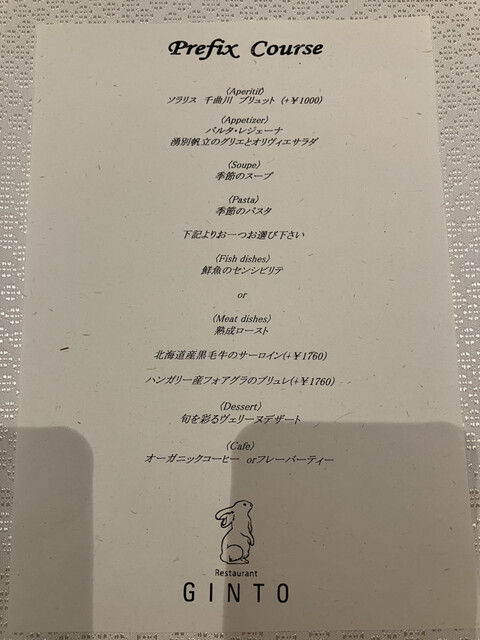 Prefix Course
(Aperitif)
ソラリス 千曲川 ブリュット (+￥1000)
(Appetizer)
パルタ・レジェーナ
湧別帆立のグリエとオリヴィエサラダ
(Soupe)
季節のスープ
(Pasta)
季節のパスタ
下記よりお一つお選び下さい
(Fish dishes)
鮮魚のセンシビリテ
or
(Meat dishes)
熟成ロースト
北海道産黒毛牛のサーロイン(+￥1760)
ハンガリー産フォアグラのブリュレ(+￥1760)
(Dessert)
旬を彩るヴェリーヌデザート
(Cafe)
オーガニックコーヒー orフレーバーティー
Restaurant
GINTO